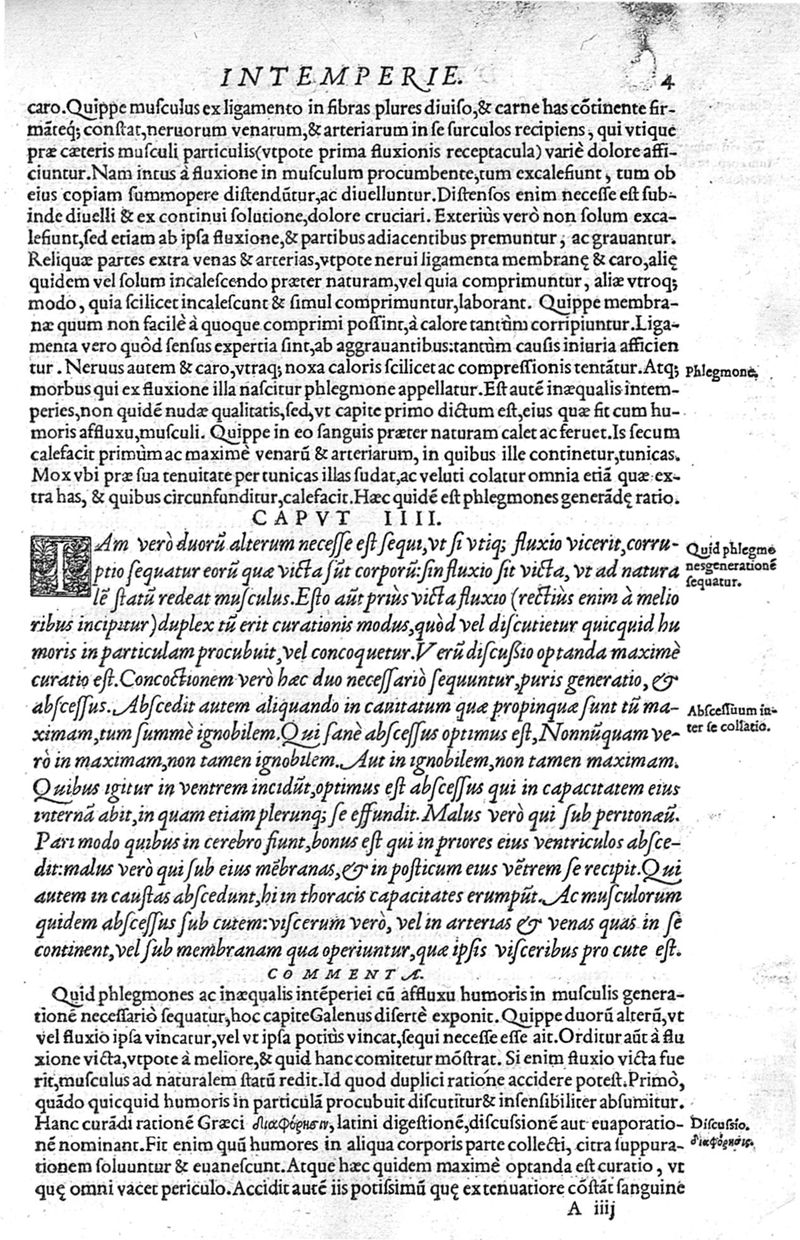 INTEMPERIE. 4
caro. Quippe musculus ex ligamento in fibras plures diuiso,& carne has cõtinente fir-
mãteq; constat,neruorum venarum,& arteriarum in se surculos recipiens, qui vtique
præ cæteris musculi particulis(vtpote prima fluxionis receptacula) variè dolore affi-
ciuntur.Nam intus à fluxione in musculum procumbente,tum excalefiunt, tum ob
eius copiam summopere distendũtur,ac diuelluntur.Distensos enim necesse est sub-
inde diuelli & ex continui solutione,dolore cruciari. Exteriùs verò non solum exca-
lefiunt,sed etiam ab ipsa fluxione,& partibus adiacentibus premuntur, ac grauantur.
Reliquæ partes extra venas & arterias,vtpote nerui ligamenta membranę & caro,alię
quidem vel solum incalescendo præter naturam,vel quia comprimuntur, aliæ vtroq;
modo, quia scilicet incalescunt & simul comprimuntur,laborant. Quippe membra-
næ quum non facilè à quoque comprimi possint,à calore tantùm corripiuntur.Liga-
menta vero quòd sensus expertia sint,ab aggrauantibus:tantùm causis iniuria afficien
tur. Neruus autem & caro,vtraq; noxa caloris scilicet ac compressionis tentãtur.Atq;
Phlegmone.
morbus qui ex fluxione illa nascitur phlegmone appellatur.Est autẽ inæqualis intem-
peries,non quidẽ nudæ qualitatis,sed,vt capite primo dictum est,eius quæ fit cum hu-
moris affluxu,musculi. Quippe in eo sanguis præter naturam calet ac feruet.Is secum
calefacit primùm ac maximè venarũ & arteriarum, in quibus ille continetur,tunicas.
Mox vbi præ sua tenuitate per tunicas illas sudat,ac veluti colatur omnia etiã quæ ex-
tra has, & quibus circunfunditur,calefacit.Hæc quidẽ est phlegmones generãdę ratio.
CAPVT IIII.
IAm verò duorũ alterum necesse est sequi,vt si vtiq; fluxio vicerit,corru-
Quid phlegmo
ptio sequatur eorũ quæ victa sũt corporũ:sin fluxio sit victa, vt ad natura
nesgenerationẽ
sequatur.
lẽ statũ redeat musculus.Esto aũt priùs victa fluxio (rectiùs enim à melio
ribus incipitur)duplex tũ erit curationis modus,quòd vel discutietur quicquid hu
moris in particulam procubuit,vel concoquetur.Verũ discußio optanda maximè
curatio est.Concoctionem verò hæc duo necessariò sequuntur,puris generatio, &
abscessus. Abscedit autem aliquando in cauitatum quæ propinquæ sunt tũ ma-
Abscessuum in-
ter se collatio.
ximam,tum summè ignobilem.Qui sanè abscessus optimus est,Nonnũquam ve-
rò in maximam,non tamen ignobilem. Aut in ignobilem,non tamen maximam.
Quibus igitur in ventrem incidũt,optimus est abscessus qui in capacitatem eius
internã abit,in quam etiam plerunq; se effundit.Malus verò qui sub peritonæũ.
Pari modo quibus in cerebro fiunt,bonus est qui in priores eius ventriculos absce-
dit:malus verò qui sub eius mẽbranas,& in posticum eius vẽtrem se recipit.Qui
autem in caustas abscedunt,hi in thoracis capacitates erumpũt. Ac musculorum
quidem abscessus sub cutem:viscerum verò, vel in arterias & venas quas in se
continent,vel sub membranam qua operiuntur,quæ ipsis visceribus pro cute est.
COMMENTA.
Quid phlegmones ac inæqualis intẽperiei cũ affluxu humoris in musculis genera-
tionẽ necessariò sequatur,hoc capite Galenus disertè exponit. Quippe duorũ alterũ,vt
vel fluxio ipsa vincatur,vel vt ipsa potiùs vincat,sequi necesse esse ait. Orditur aũt à flu
xione victa,vtpote à meliore,& quid hanc comitetur mõstrat. Si enim fluxio victa fue
rit,musculus ad naturalem statũ redit.Id quod duplici ratione accidere potest.Primò,
quãdo quicquid humoris in particulã procubuit discutitur& insensibiliter absumitur.
Hanc curãdi rationẽ Græci διαφόρησιν, latini digestionẽ,discussionẽ aut euaporatio-
Discussio.
διαφόρησις.
nẽ nominant.Fit enim quũ humores in aliqua corporis parte collecti, citra suppura-
tionem soluuntur & euanescunt.Atque hæc quidem maximè optanda est curatio, vt
quę omni vacet periculo.Accidit autẽ iis potissimũ quę ex tenuatiore cõstãt sanguine
A iiij